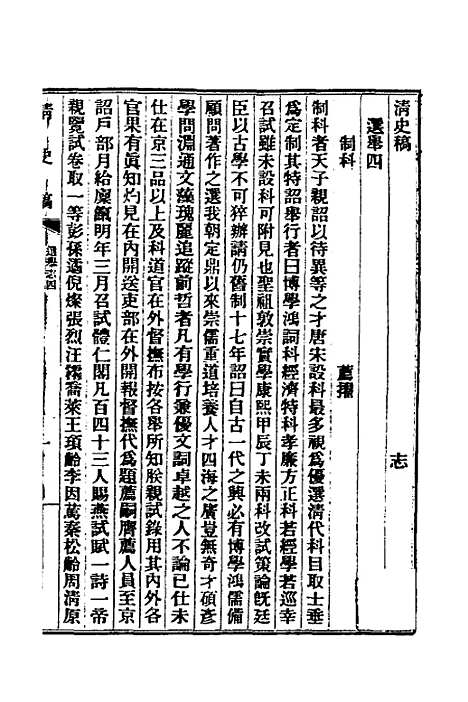 清史稿　志
選舉四
制科　薦擢
制科者天子親詔以待異等之才唐宋設科最多視為優選清代科目取士垂
為定制其特詔舉行者曰博學鴻詞科經濟特科孝廉方正科若經學若巡幸
召試雖未設科可附見也聖祖敦崇實學康熙甲辰丁未兩科改試策論旣廷
臣以古學不可猝辦請仍舊制十七年詔曰自古一代之興必有博學鴻儒備
顧問著作之選我朝定鼎以來崇儒重道培養人才四海之廣豈無奇才碩彥
學問淵通文藻瑰麗追蹤前哲者凡有學行兼優文詞卓越之人不論已仕未
仕在京三品以上及科道官在外督撫布按各舉所知朕親試錄用其內外各
官果有眞知灼見在內開送吏部在外開報督撫代為題薦嗣膺薦人員至京
詔戶部月給廩餼明年三月召試體仁閣凡百四十三人賜燕試賦一詩一帝
親覽試卷取一等彭孫遹倪燦張烈汪霦喬萊王頊齡李因篤秦松齡周清原
清史稿　選舉志四　一